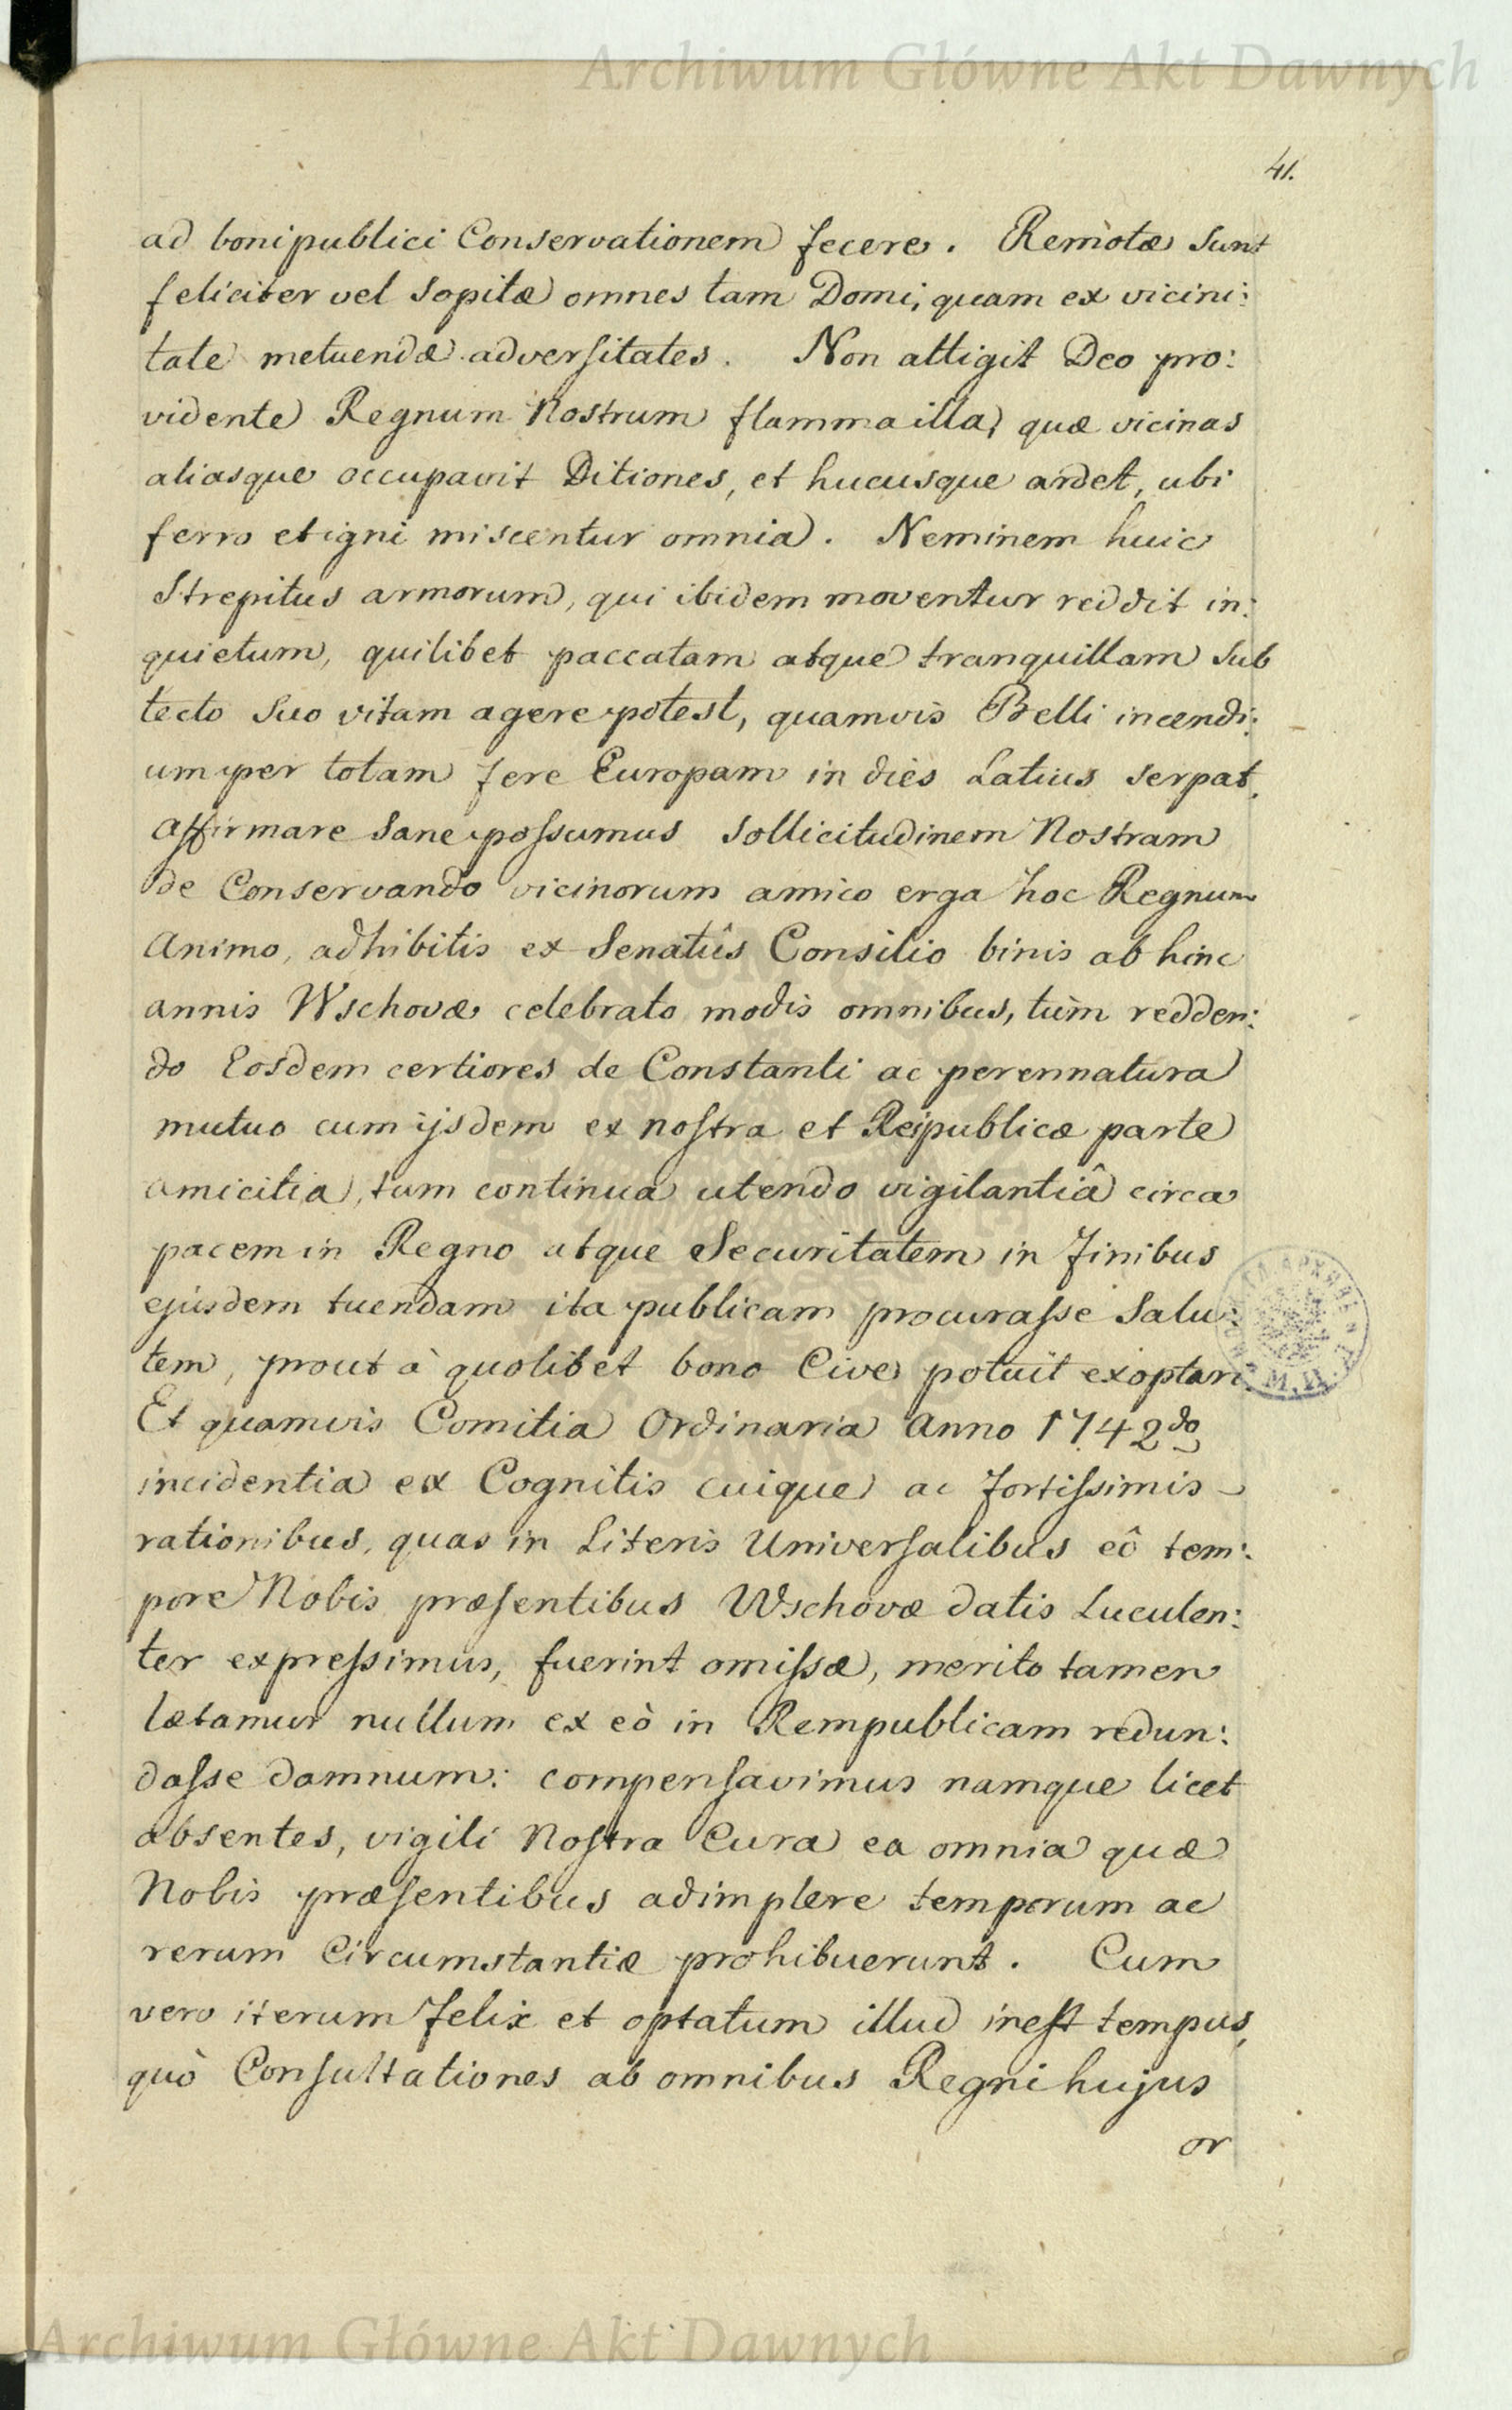 Archiwum Główne Akt Dawnych
41.
ad boni publici Conservationem fecere. Remotæ Sunt
feliciter vel Sopitæ omnes tam Domi, quam ex vicini:
tate metuendæ adversitates. Non attigit Deo pro:
vidente Regnum Nostrum flamma illa, quæ vicinas
aliasque occupavit Ditiones, et hucusque ardet, ubi
ferro et igni miscentur omnia. Neminem huic
Strepitus armorum, qui ibidem moventur reddit in:
quietum, quilibet paccatam atque tranquillam Sub
tecto Suo vitam agere potest, quamvis Belli incendi:
um per totam fere Europam in dies Latius Serpat.
Affirmare Sane possumus Sollicitudinem Nostram
de Conservando vicinorum amico erga hoc Regnum
Animo, adhibitis ex Senatûs Consilio binis ab hinc
annis Wschovæ celebrato modis omnibus, tùm redden:
do Eosdem certiores de Constanti ac perennatura
mutuo cum ijsdem ex nostra et Reipublicæ parte
amicitia, tum continua utendo vigilantiâ circa
pacem in Regno atque Securitatem in Finibus
ejusdem tuendam ita publicam procurasse Salu:
tem, prout à quolibet bono Cive potuit exoptari.
Et quamvis Comitia Ordinaria Anno 1742do
incidentia ex Cognitis cuique ac fortissimis
rationibus, quas in Literis Universalibus eô tem:
pore Nobis præsentibus Wschovæ datis Luculen:
ter expressimus, fuerint omissæ, merito tamen
lætamur nullum ex eò in Rempublicam redun:
dasse damnum: compensavimus namque licet
absentes, vigili Nostra Cura ea omnia quæ
Nobis præsentibus adimplere temporum ac
rerum Circumstantiæ prohibuerunt. Cum
vero iterum felix et optatum illud inest tempus,
quò Consultationes ab omnibus Regni hujus
or
Archiwum Główne Akt Dawnych